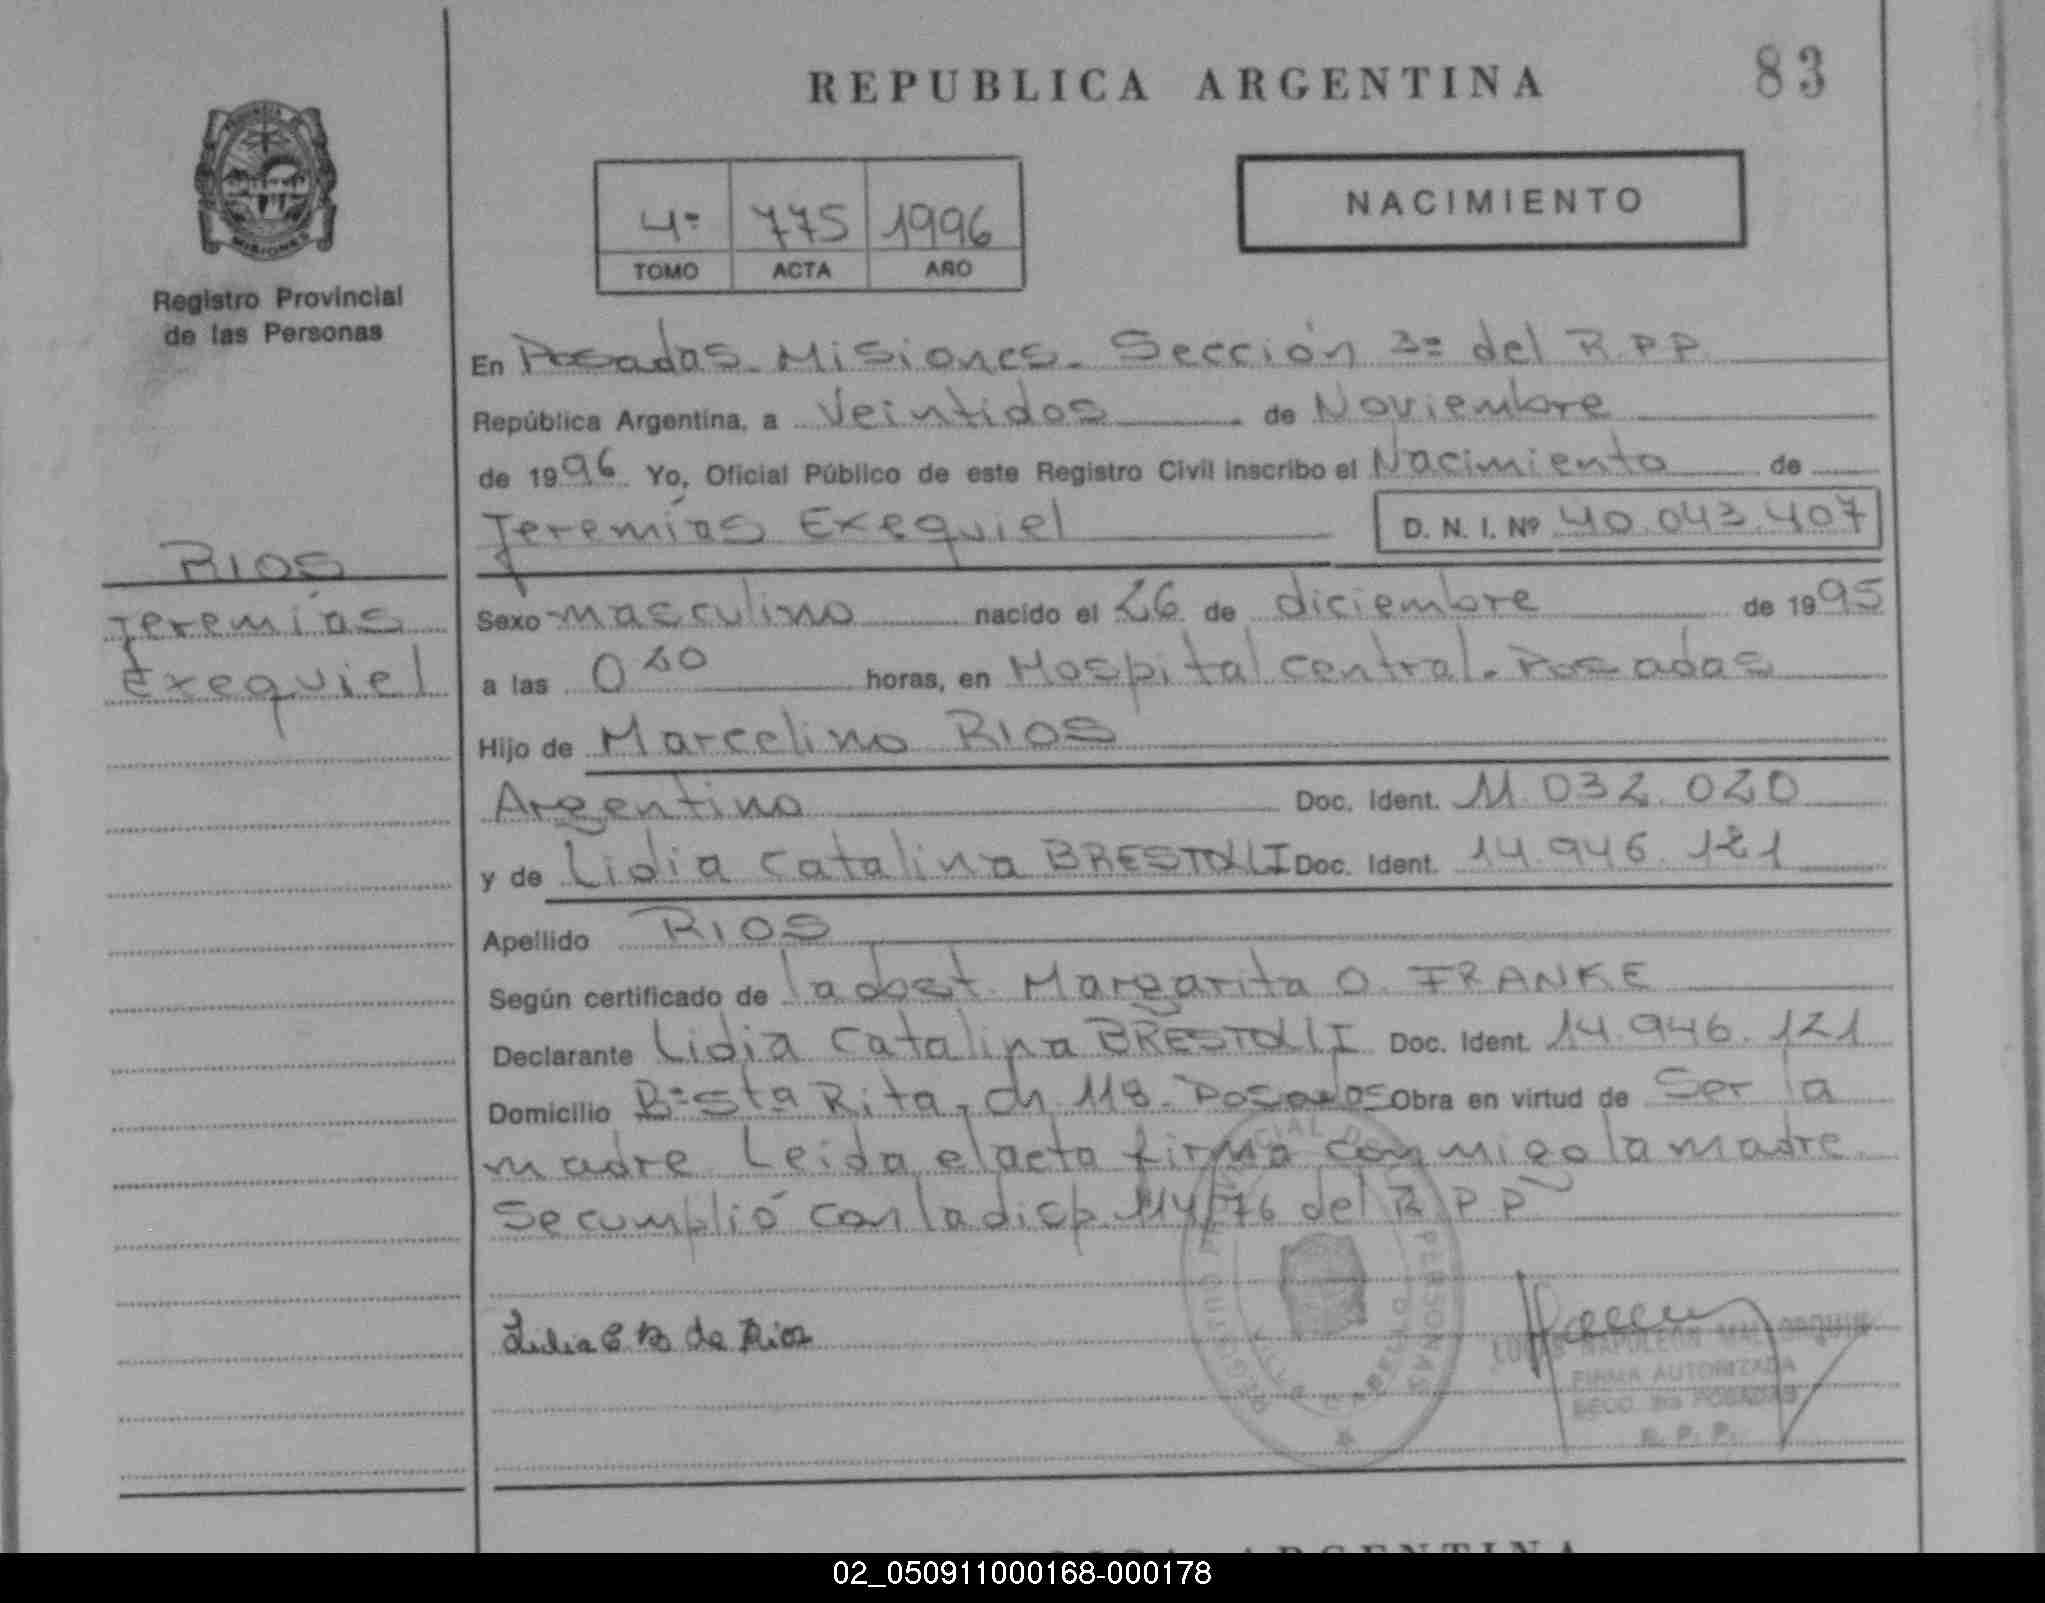 REPUBLICA ARGENTINA
83
NACIMIENTO
4º 775 1996
TOMO ACTA AÑO
MISIONES
Registro Provincial
de las Personas
En Posadas. Misiones. Sección 3ª del R.P.P.
República Argentina, a Veintidos de Noviembre
de 1996 Yo, Oficial Público de este Registro Civil inscribo el Nacimiento de
Jeremías Exequiel D. N. I. Nº 40.043.407
RIOS
Jeremías
Exequiel
Sexo masculino nacido el 26 de diciembre de 1995
a las 0 20 horas, en Hospital central. Posadas
Hijo de Marcelino RIOS
Argentino Doc. Ident. 11.032.020
y de Lidia Catalina BRESTOLLI Doc. Ident. 14.946.121
Apellido RIOS
Según certificado de la obst. Margarita O. FRANKE
Declarante Lidia Catalina BRESTOLLI Doc. Ident. 14.946.121
Domicilio Bº Sta Rita, ch 118. Posadas Obra en virtud de Ser la
madre Leida el acta firma conmigo la madre.
Se cumplió con la disp. 114/76 del R.P.P
Lidia C B de Rios
LUCAS NAPOLEON
FIRMA AUTORIZADA
SECC. 3ra POSADAS
R. P. P.
02_050911000168-000178